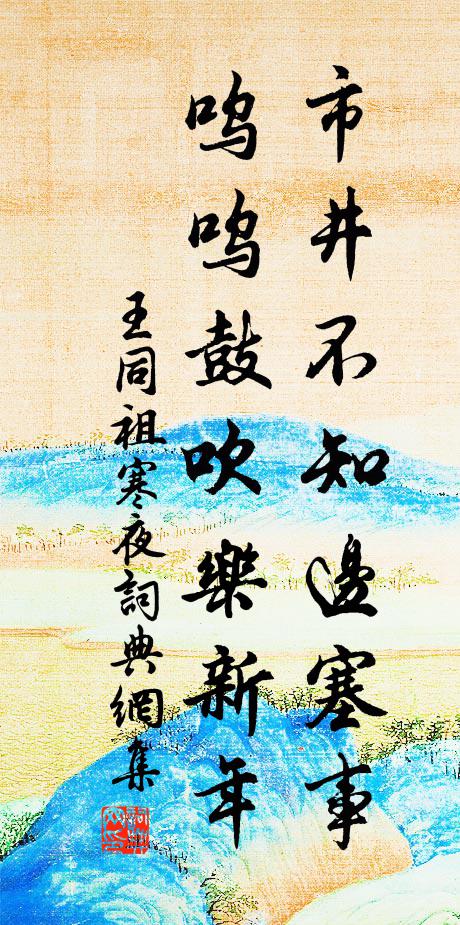 市井不知邊塞事
嗚嗚鼓吹樂新年
王同祖寒夜詞典網集